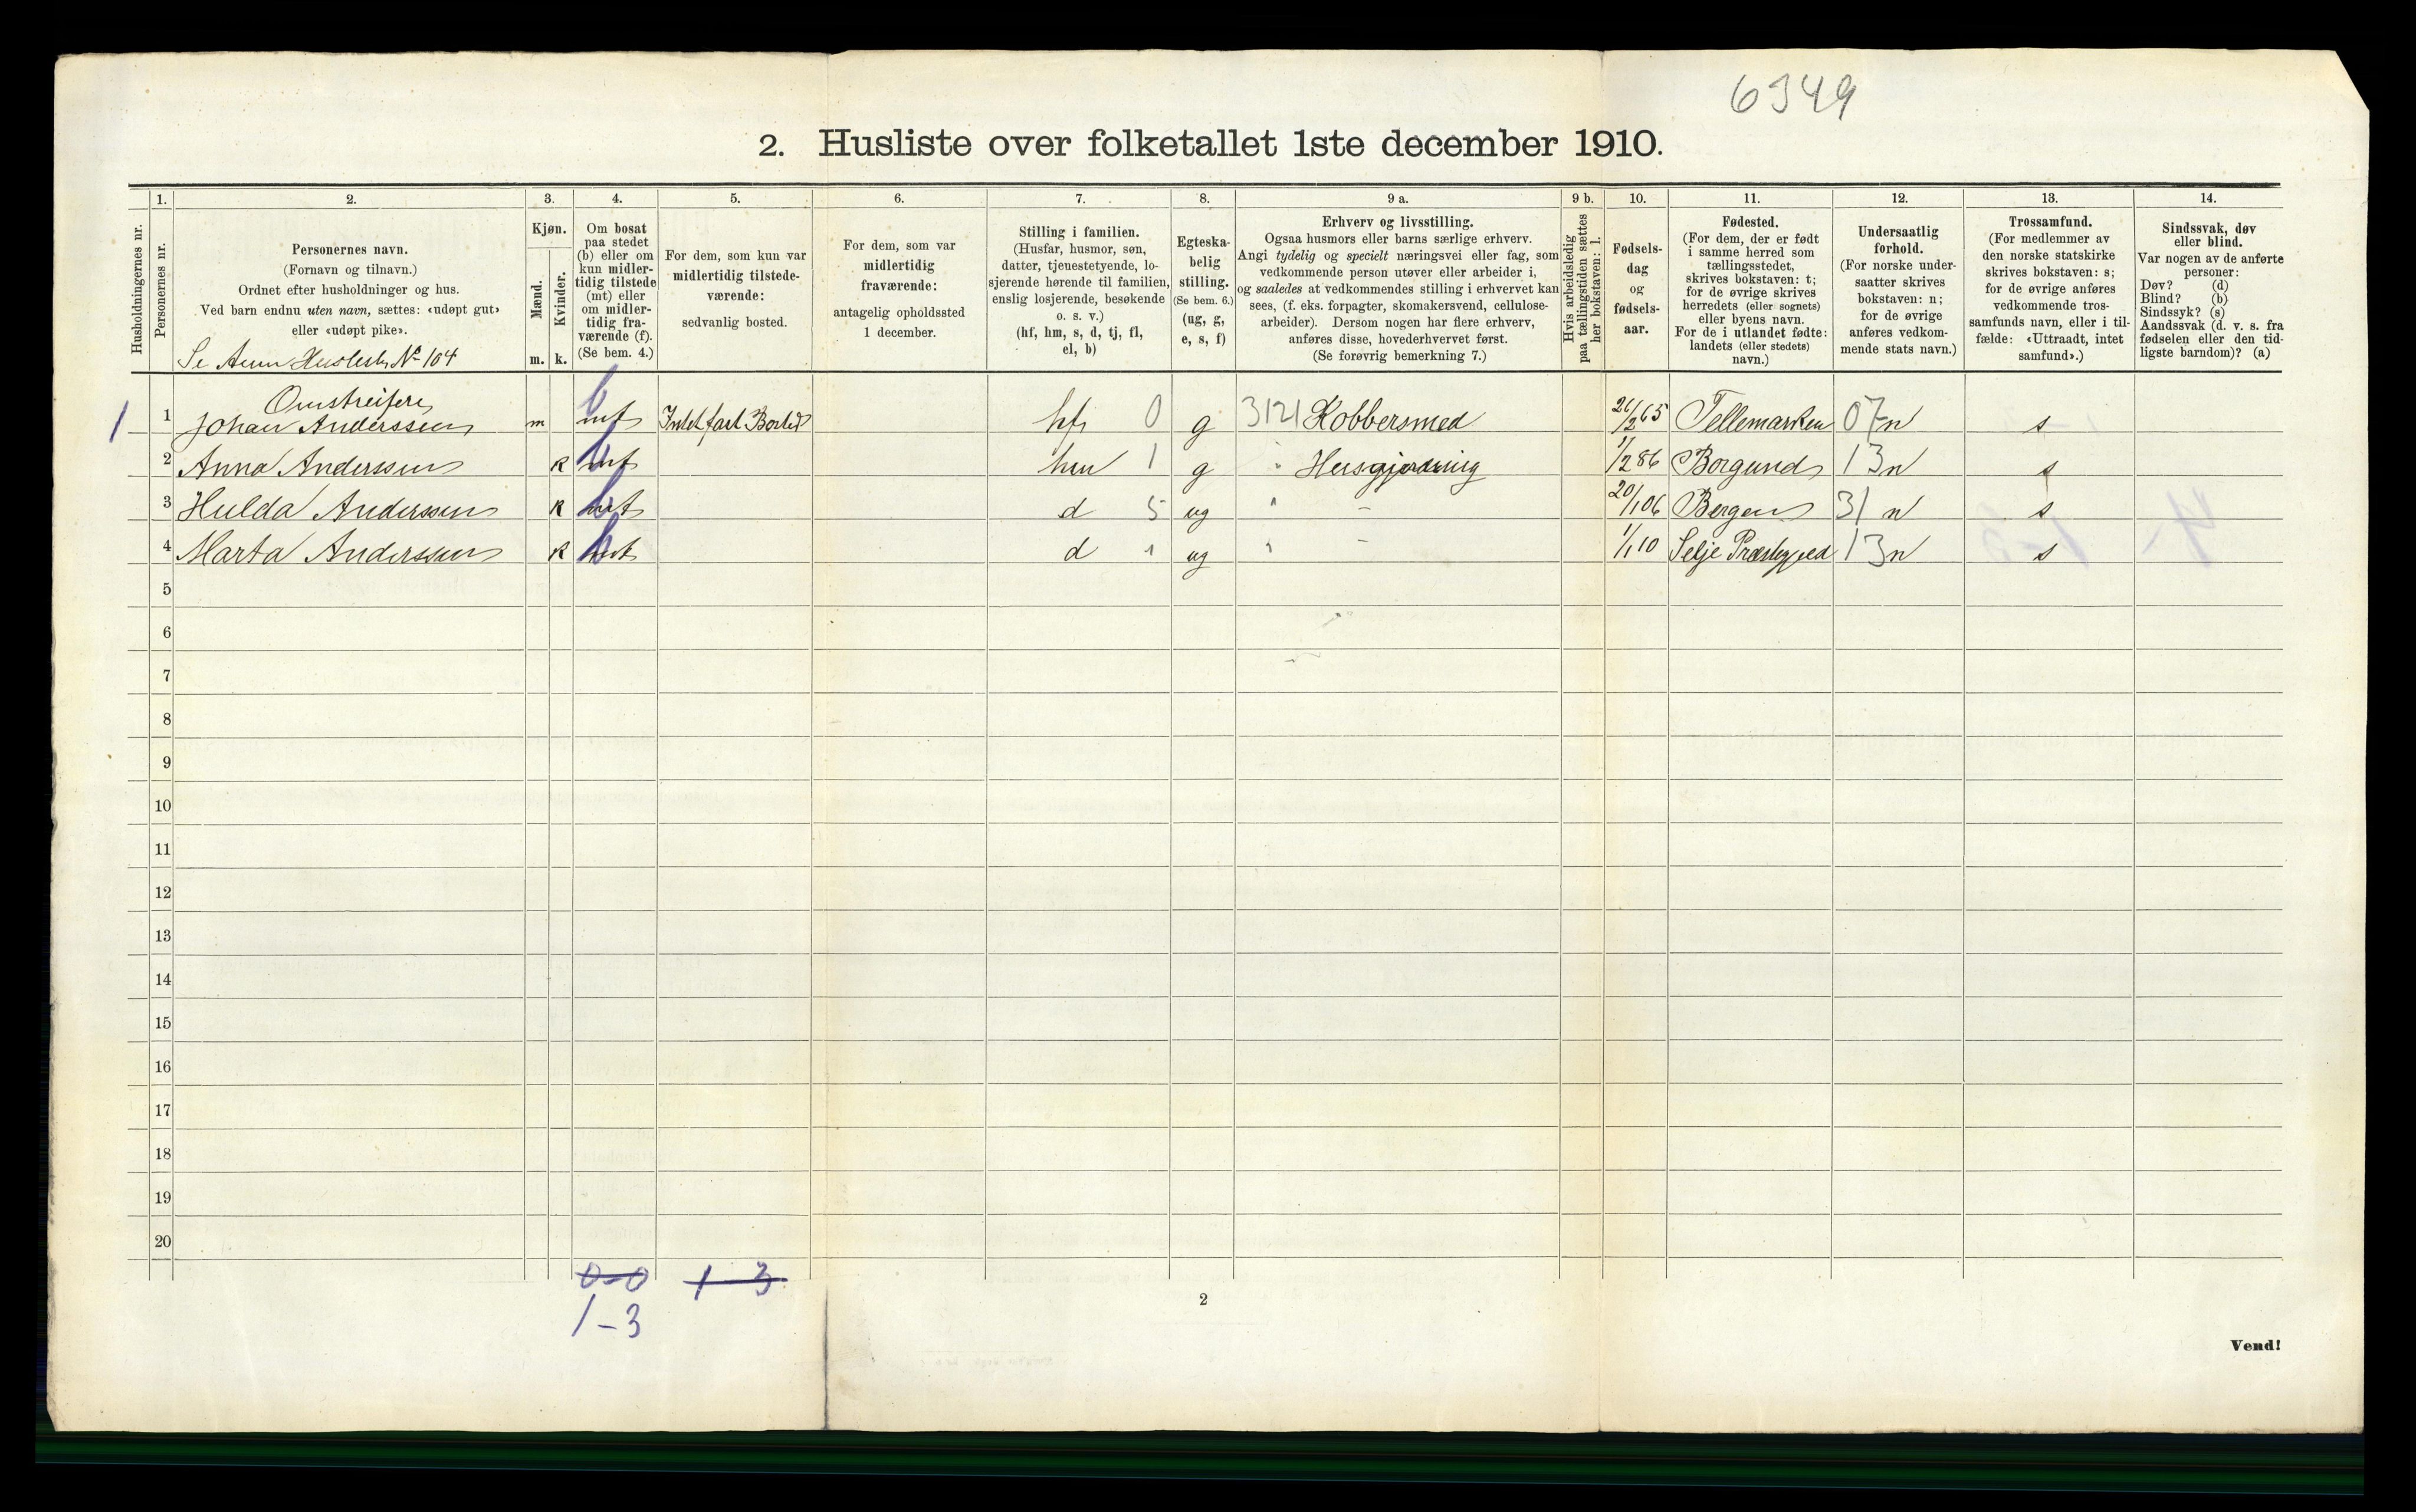 6349
2. Husliste over folketallet 1ste december 1910.
Husholdningernes nr.
1.
Personernes nr.
2.
Personernes navn.
(Fornavn og tilnavn.)
Ordnet efter husholdninger og hus.
Ved barn endnu uten navn, sættes: «udøpt gut»
eller «udøpt pike».
No 104
3.
Kjøn.
Mænd.
Kvinder.
m. k.
4.
Om bosat
paa stedet
(b) eller om
kun midler-
tidig tilstede
(mt) eller
om midler-
tidig fra-
værende (f).
(Se bem. 4.)
5.
For dem, som kun var
midlertidig tilstede-
værende:
sedvanlig bosted.
6.
For dem, som var
midlertidig
fraværende:
antagelig opholdssted
1 december.
7.
Stilling i familien.
(Husfar, husmor, søn,
datter, tjenestetyende, lo-
sjerende hørende til familien,
enslig losjerende, besøkende
o. s. v.)
(hf, hm, s, d, tj, fl,
el, b)
8.
Egteska-
belig
stilling.
(Se bem. 6.)
(ug, g,
e, s, f)
9 a.
Erhverv og livsstilling.
Ogsaa husmors eller barns særlige erhverv.
Angi tydelig og specielt næringsvei eller fag, som
vedkommende person utøver eller arbeider i,
og saaledes at vedkommendes stilling i erhvervet kan
sees, (f. eks. forpagter, skomakersvend, cellulose-
arbeider). Dersom nogen har flere erhverv,
anføres disse, hovederhvervet først.
(Se forøvrig bemerkning 7.)
9 b.
Hvis arbeidsledig
paa tællingstiden sættes
her bokstaven: l.
10.
Fødsels-
dag
og
fødsels-
aar.
11.
Fødested.
(For dem, der er født
i samme herred som
tællingsstedet,
skrives bokstaven: t;
for de øvrige skrives
herredets (eller sognets)
eller byens navn.
For de i utlandet fødte:
landets (eller stedets)
navn.)
12.
Undersaatlig
forhold.
(For norske under-
saatter skrives
bokstaven: n;
for de øvrige
anføres vedkom-
mende stats navn.)
13.
Trossamfund.
(For medlemmer av
den norske statskirke
skrives bokstaven: s;
for de øvrige anføres
vedkommende tros-
samfunds navn, eller i til-
fælde: «Uttraadt, intet
samfund».)
14.
Sindssvak, døv
eller blind.
Var nogen av de anførte
personer:
Døv? (d)
Blind? (b)
Sindssyk? (s)
Aandssvak (d. v. s. fra
fødselen eller den tid-
ligste barndom)? (a)
Omstreifere
1 1 Johan Anderssen m mt b Intet fast Bosted hf 0 g 3121 Kobbersmed 26/2 65 Tellemarken 07 n s
2 Anna Anderssen k mt b hm 1 g " Husgjerning 1/2 86 Borgund 13 n s
3 Hulda Anderssen k mt b d 5 ug " - 20/1 06 Bergen 31 n s
4 Marta Anderssen k mt b d 1 ug " - 1/1 10 Selje Præstegjeld 13 n s
5
6
7
8
9
10
11
12
13
14
15
16
17
18
19
20
0-0 1-3
1-3
2
Vend!